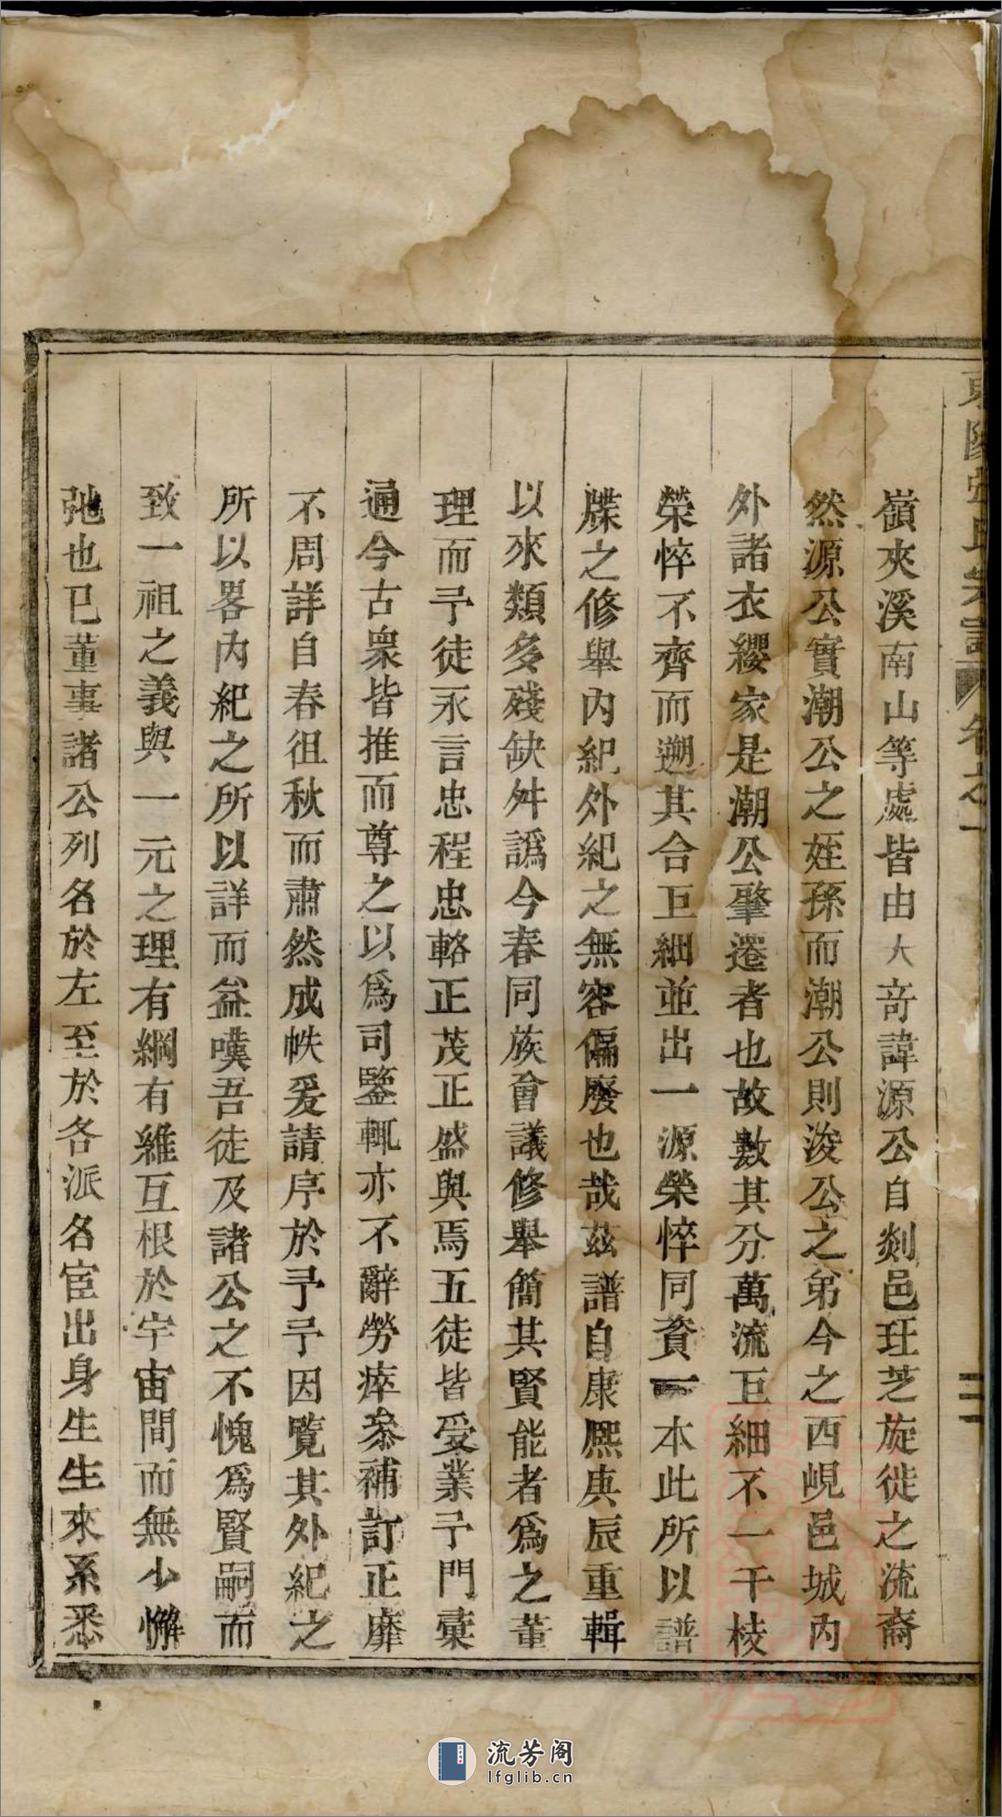 嶺夾溪南山等處皆由大竒諱源公自剡邑玨芝旋徙之流裔
然源公實潮公之姪孫而潮公則浚公之弟今之西峴邑城內
外諸衣纓家是潮公肇遷者也故數其分萬流巨細不一千枝
榮悴不齊而遡其合巨細並出一源榮悴同資一本此所以譜
牒之修舉內紀外紀之無容偏廢也哉茲譜自康熈庚辰重輯
以來類多殘缺舛譌今春同族會議修舉簡其賢能者為之董
理而予徒永言忠程忠輅正茂正盛與焉五徒皆受業予門彙
通今古衆皆推而尊之以為司鑒輒亦不辭勞瘁叅補訂正靡
不周詳自春徂秋而肅然成帙爰請序於予予因覽其外紀之
所以畧內紀之所以詳而益嘆吾徒及諸公之不愧為賢嗣而
致一祖之義與一元之理有綱有維互根於宇宙間而無少懈
弛也已董事諸公列名於左至於各派名宦出身生生來系悉
東陽 氏宗譜 卷之一
流芳阁
lfglib.cn